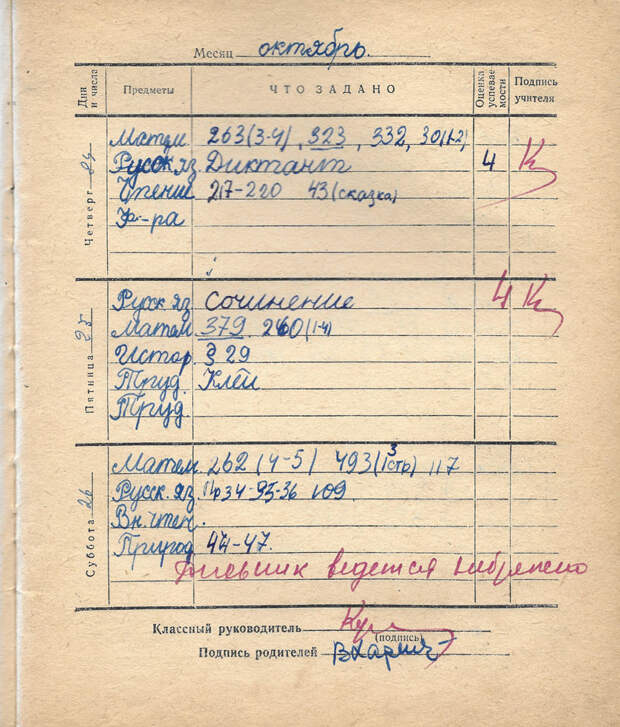 Месяц октябрь.
Дни и числа Предметы ЧТО ЗАДАНО Оценка успевае- мости Подпись учителя
Четверг 24
Матем 263(3-4), 323, 332, 30(1-2)
Русск яз. Диктант 4 К
Чтение 217-220 43 (сказка)
Ф-ра
Пятница 25
Русск яз. Сочинение 4 К
Матем. 379 260(1-4)
Истор. § 29
Труд. Клей
Труд.
Суббота 26
Матем. 262 (4-5) 493(3 стр) 117
Русск. яз. 34-95-36 109.
Вн. чтен.
Природ 44-47.
Дневник ведется небрежно
Классный руководитель
(подпись)
Подпись родителей